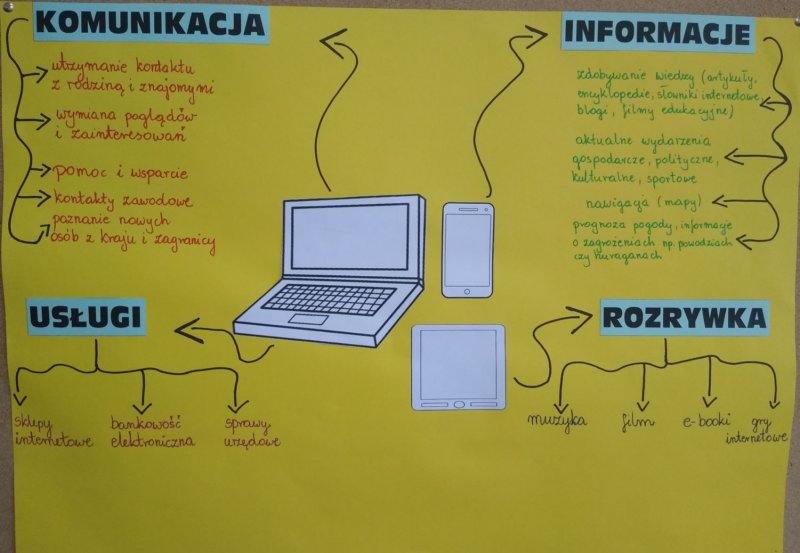 KOMUNIKACJA
utrzymanie kontaktu
z rodziną i znajomymi
wymiana poglądów
i zainteresowań
pomoc i wsparcie
kontakty zawodowe
poznanie nowych
osób z kraju i zagranicy
INFORMACJE
zdobywanie wiedzy (artykuły,
encyklopedie, słowniki internetowe,
blogi, filmy edukacyjne)
aktualne wydarzenia
gospodarcze, polityczne,
kulturalne, sportowe
nawigacja (mapy)
prognoza pogody, informacje
o zagrożeniach np. powodziach
czy huraganach
USŁUGI
sklepy
internetowe
bankowość
elektroniczna
sprawy
urzędowe
ROZRYWKA
muzyka
film
e-booki
gry
internetowe